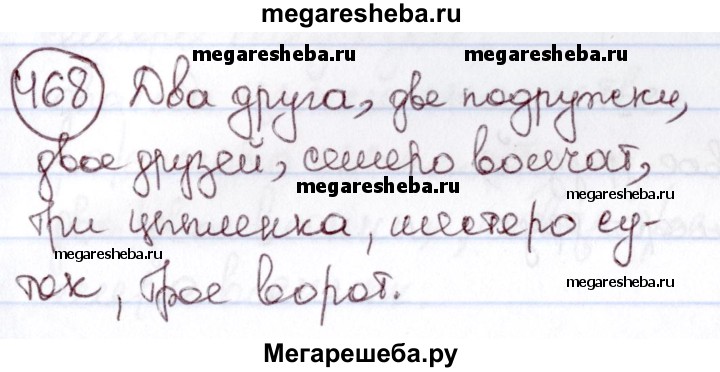 megaresheba.ru
megaresheba.ru megaresheba.ru
468 Два друга, две подружки,
двое друзей, семеро волчат,
megaresheba.ru megaresheba.ru
три цыпленка, шестеро су-
megaresheba.ru megaresheba.ru
ток, трое ворот.
Мегарешеба.ру